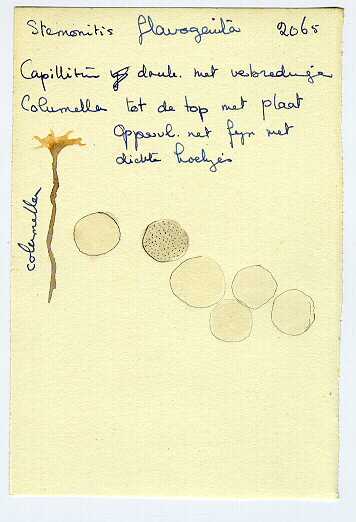 Stemonitis flavogenita 2065
Capillitium donk. met verbredingen
Columella tot de top met plaat
Oppervl. net fyn met
dichte hoekjes
columella